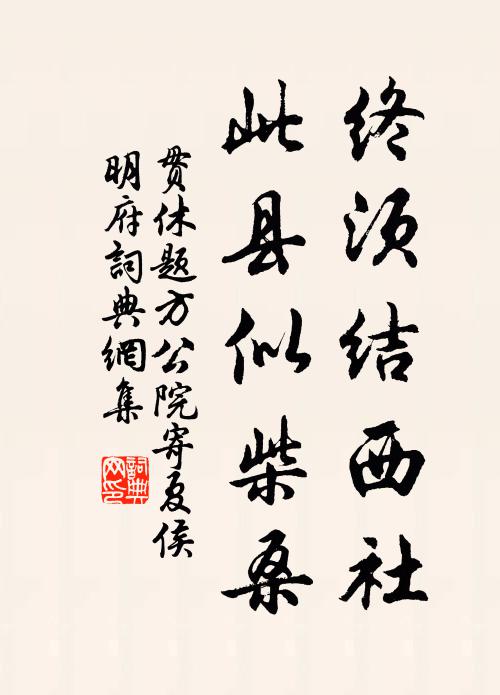 终须结西社
此县似柴桑
贯休题方公院寄夏侯
明府詞典網集
詞典
网印